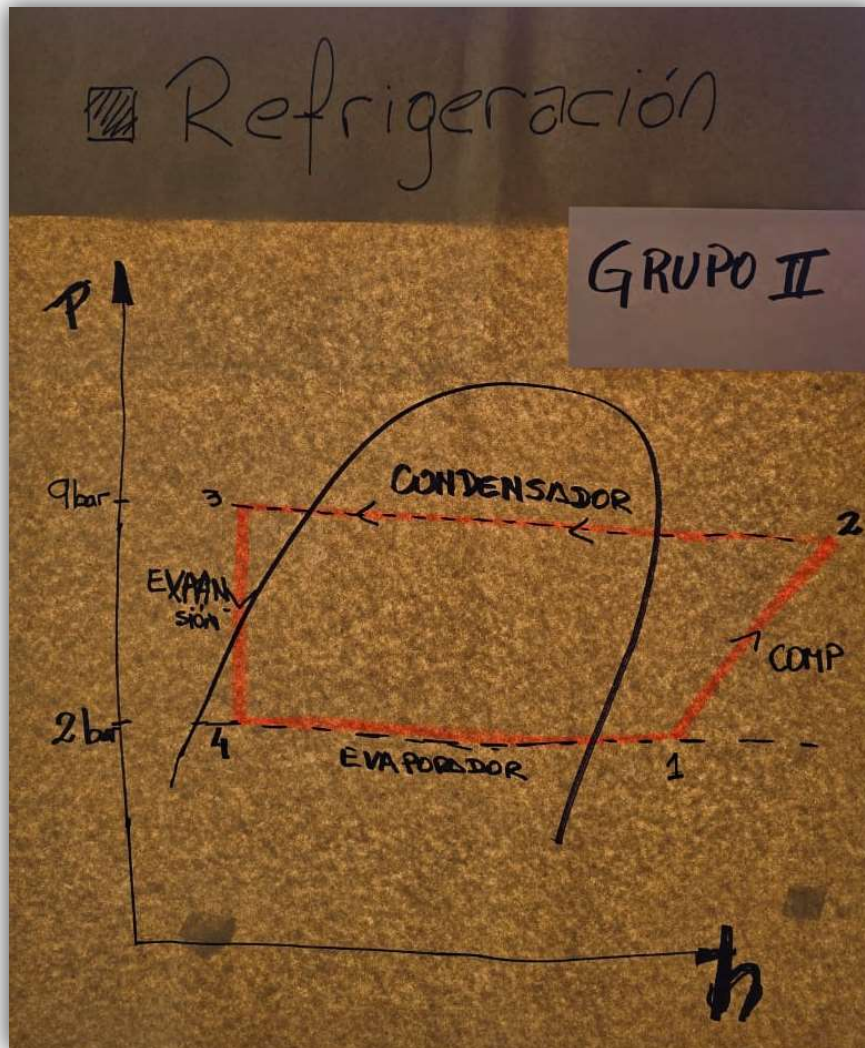 Refrigeración
GRUPO II
P
9bar
3
CONDENSADOR
2
EXPAN
sión
COMP
2 bar
4
EVAPORADOR
1
h